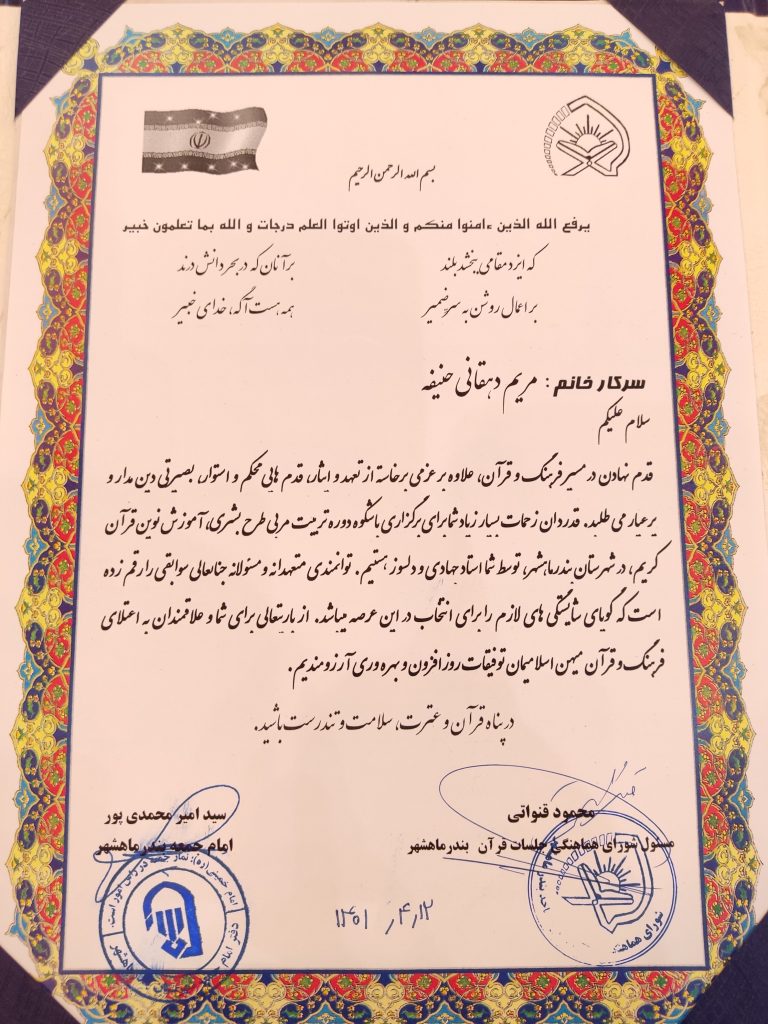 بسم الله الرحمن الرحیم
یرفع الله الذین ءامنوا منکم و الذین اوتوا العلم درجات و الله بما تعلمون خبیر
که ایزد مقامی ببخشد بلند    بر آنان که در بحر دانش درند
بر اعمال روشن به سر ضمیر    همه هست آگه، خدای خبیر
سرکار خانم : مریم دهقانی حنیفه
سلام علیکم
قدم نهادن در مسیر فرهنگ و قرآن، علاوه بر عزمی برخاسته از تعهد و ایثار، قدم هایی محکم و استوار، بصیرتی دین مدار و
پر عیار می طلبد. قدردان زحمات بسیار زیاد شما برای برگزاری باشکوه دوره تربیت مربی طرح بشری، آموزش نوین قرآن
کریم، در شهرستان بندرماهشهر، توسط شما استاد جهادی و دلسوز هستیم. توانمندی متعهدانه و مسئولانه جنابعالی سوابقی را رقم زده
است که گویای شایستگی های لازم را برای انتخاب در این عرصه میباشد. از باریتعالی برای شما و علاقمندان به اعتلای
فرهنگ و قرآن میهن اسلامیمان توفیقات روز افزون و بهره وری آرزومندیم.
در پناه قرآن و عترت، سلامت و تندرست باشید.
محمود قنواتی
مسئول شورای هماهنگی جلسات قرآن بندرماهشهر
سید امیر محمدی پور
امام جمعه بندرماهشهر
امام خمینی (ره): نماز جمعه در رأس امور است.
دفتر امام
شورای هماهنگی
۱۴۰۱/۴/۱۲